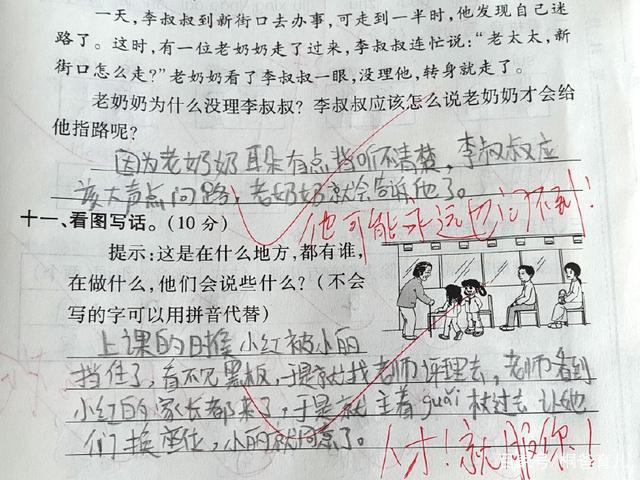 一天，李叔叔到新街口去办事，可走到一半时，他发现自己迷
路了。这时，有一位老奶奶走了过来，李叔叔连忙说：“老太太，新
街口怎么走？”老奶奶看了李叔叔一眼，没理他，转身就走了。
老奶奶为什么没理李叔叔？李叔叔应该怎么说老奶奶才会给
他指路呢？
因为老奶奶耳朵有点挡听不清楚，李叔叔应
该大声点问路，老奶奶就会告诉他了。
他可能永远也问不到！
十一、看图写话。（10分）
提示：这是在什么地方，都有谁，
在做什么，他们会说些什么？（不会
写的字可以用拼音代替）
上课的日候小红被小丽
挡住了，看不见黑板，于是就找老师评理去，老师看到
小红的家长都来了，于是就主着guǎi杖过去让她
们换座位，小丽就同意了。
人才！就服你！